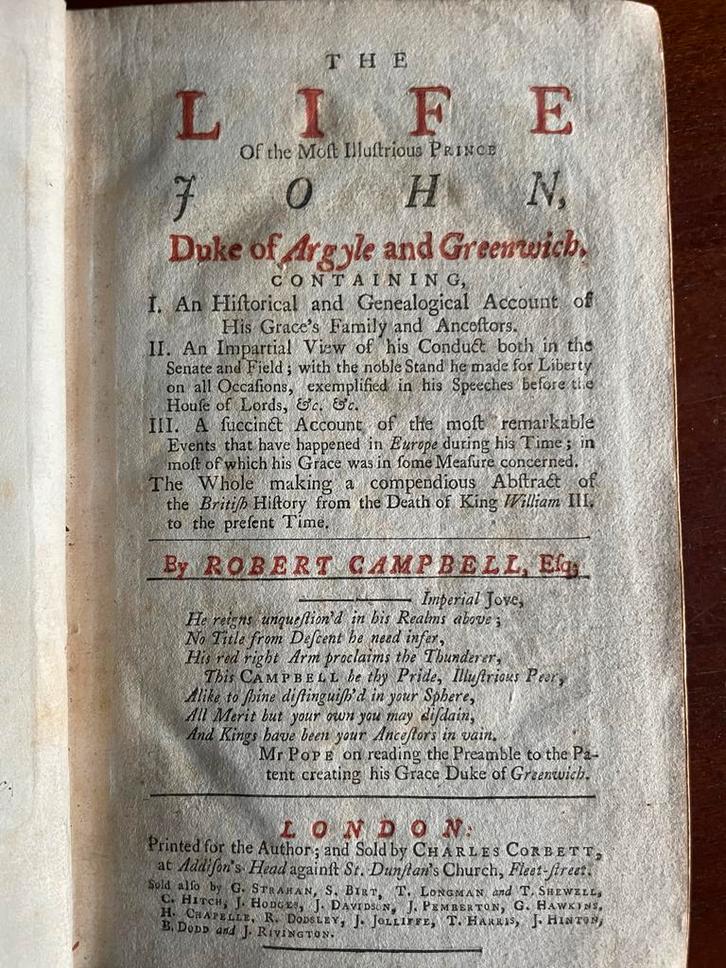 THE
LIFE
Of the Moſt Illuſtrious PRINCE
JOHN,
Duke of Argyle and Greenwich.
CONTAINING,
I. An Hiſtorical and Genealogical Account of
His Grace's Family and Anceſtors.
II. An Impartial View of his Conduct both in the
Senate and Field; with the noble Stand he made for Liberty
on all Occaſions, exemplified in his Speeches before the
Houſe of Lords, &c. &c.
III. A ſuccinct Account of the moſt remarkable
Events that have happened in Europe during his Time; in
moſt of which his Grace was in ſome Meaſure concerned.
The Whole making a compendious Abſtract of
the Britiſh Hiſtory from the Death of King William III.
to the preſent Time.
By ROBERT CAMPBELL, Eſq;
Imperial Jove,
He reigns unqueſtion'd in his Realms above;
No Title from Deſcent he need infer,
His red right Arm proclaims the Thunderer,
This CAMPBELL be thy Pride, Illuſtrious Peer,
Alike to ſhine diſtinguiſh'd in your Sphere,
All Merit but your own you may diſdain,
And Kings have been your Anceſtors in vain.
Mr POPE on reading the Preamble to the Pa-
tent creating his Grace Duke of Greenwich.
LONDON:
Printed for the Author; and Sold by CHARLES CORBETT,
at Addiſon's Head againſt St. Dunſtan's Church, Fleet-ſtreet.
Sold alſo by G. STRAHAN, S. BIRT, T. LONGMAN and T. SHEWELL,
C. HITCH, J. HODGES, J. DAVIDSON, J. PEMBERTON, G. HAWKINS,
H. CHAPELLE, R. DODSLEY, J. JOLLIFFE, T. HARRIS, J. HINTON,
B. DODD and J. RIVINGTON.